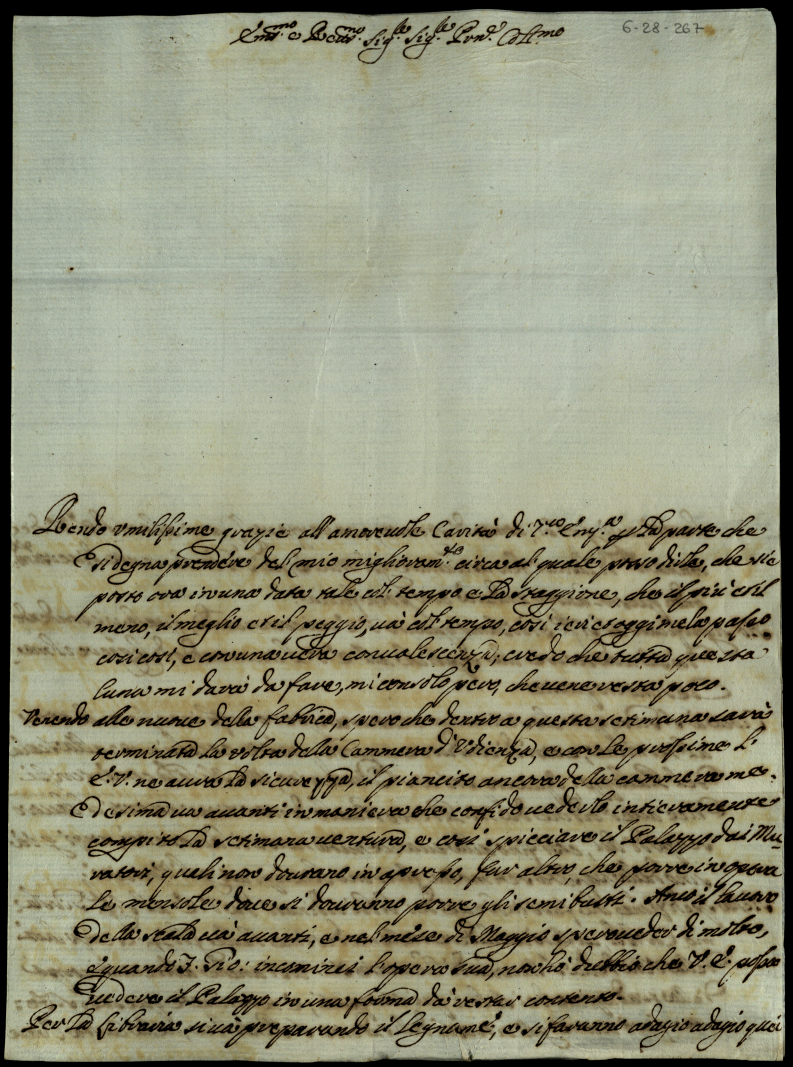 Em.mo e Rev.mo Sig.re Sig.re Pron.e Coll.mo
6-28-267
Rendo umilissime grazie all'amorevole Carità di V.ra Em.za p la parte che
si degna prendére del mio miglioram.to circa al quale posso dirle, che sié
posto ora in una data tale col tempo e la staggione, che il più et il
meno, il meglio et il peggio, và col tempo, così ieri et oggi me la passo
così così, e con una vera convalescenza; credo che tutta questa
luna mi darà da fare, mi consolo però, che ne resta poco.
Venendo alle nuove della fabrica, spero che dentro a questa setimana sarà
terminata la volta della Cammera d'Udienza, e con le prossime l'
E.V. ne avrà la sicurezza, il piancito ancora della cammera me-
desima va avanti in maniera che confido vederlo intieramente
compito la setimana ventura, e così spicciare il Palazzo dai Mu-
ratori, quali non dovrano in apresso, far altro, che porre in opera
le mensole dove si dovranno porre gli semibusti. Anco il lavoro
della scala và avanti, e nel mése di Maggio spero veder di molto,
e quando S. Gio: incominci l'opera sua, non hò dubbio che V.E. possa
vedere il Palazzo in una forma da restar contento.
Per la libraria si và preparando il legname, e si faranno adagio adagio quei